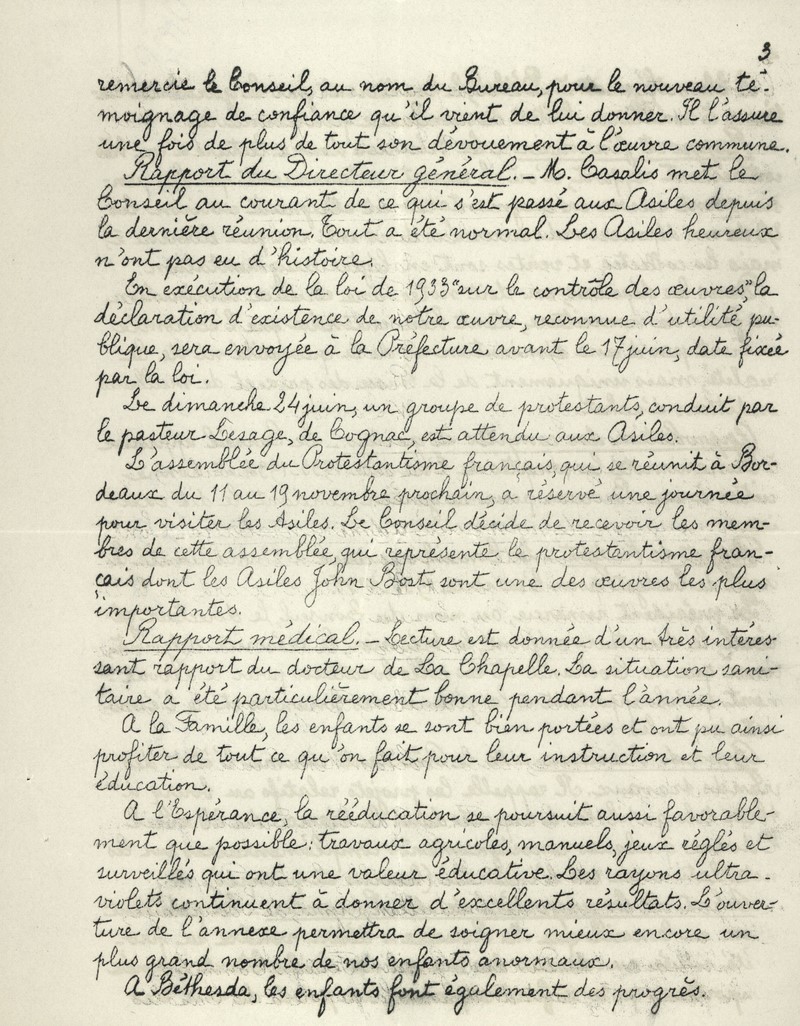 3
remercie le Conseil, au nom du Bureau, pour le nouveau té-
moignage de confiance qu'il vient de lui donner. Il l'assure
une fois de plus de tout son dévouement à l'œuvre commune.
Rapport du Directeur général. - M. Casalis met le
Conseil au courant de ce qui s'est passé aux Asiles depuis
la dernière réunion. Tout a été normal. Les Asiles heureux
n'ont pas eu d'histoire.
En exécution de la loi de 1933 "sur le contrôle des œuvres", la
déclaration d'existence de notre œuvre, reconnue d'utilité pu-
blique, sera envoyée à la Préfecture avant le 17 juin, date fixée
par la loi.
Le dimanche 24 juin, un groupe de protestants, conduit par
le pasteur Lesage, de Cognac, est attendu aux Asiles.
L'assemblée du Protestantisme français, qui se réunit à Bor-
deaux du 11 au 19 novembre prochain, a réservé une journée
pour visiter les Asiles. Le Conseil décide de recevoir les mem-
bres de cette assemblée, qui représente le protestantisme fran-
çais dont les Asiles John Bost sont une des œuvres les plus
importantes.
Rapport médical. - Lecture est donnée d'un très intéres-
sant rapport du docteur de La Chapelle. La situation sani-
taire a été particulièrement bonne pendant l'année.
A la Famille, les enfants se sont bien portées et ont pu ainsi
profiter de tout ce qu'on fait pour leur instruction et leur
éducation.
A l'Espérance, la rééducation se poursuit aussi favorable-
ment que possible: travaux agricoles, manuels, jeux réglés et
surveillés qui ont une valeur éducative. Les rayons ultra-
violets continuent à donner d'excellents résultats. L'ouver-
ture de l'annexe permettra de soigner mieux encore un
plus grand nombre de nos enfants anormaux.
A Béthesda, les enfants font également des progrès.